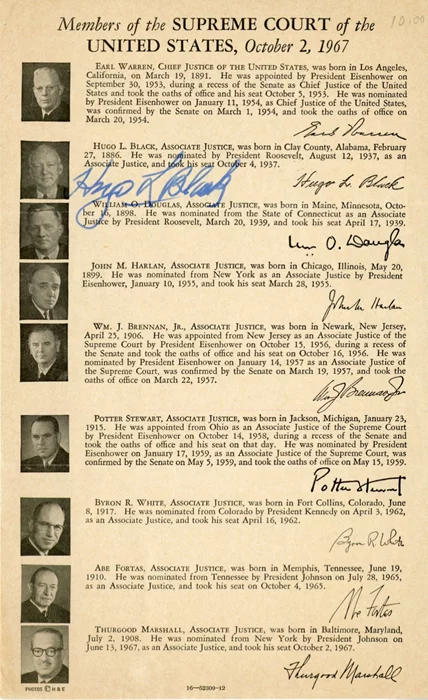 10.00
Members of the SUPREME COURT of the
UNITED STATES, October 2, 1967
EARL WARREN, CHIEF JUSTICE OF THE UNITED STATES, was born in Los Angeles,
California, on March 19, 1891. He was appointed by President Eisenhower on
September 30, 1953, during a recess of the Senate as Chief Justice of the United
States and took the oaths of office and his seat October 5, 1953. He was nominated
by President Eisenhower on January 11, 1954, as Chief Justice of the United States,
was confirmed by the Senate on March 1, 1954, and took the oaths of office on
March 20, 1954.
Earl Warren
HUGO L. BLACK, ASSOCIATE JUSTICE, was born in Clay County, Alabama, February
27, 1886. He was nominated by President Roosevelt, August 12, 1937, as an
Associate Justice, and took his seat October 4, 1937.
Hugo L Black
Hugo L. Black
WILLIAM O. DOUGLAS, ASSOCIATE JUSTICE, was born in Maine, Minnesota, Octo-
ber 16, 1898. He was nominated from the State of Connecticut as an Associate
Justice by President Roosevelt, March 20, 1939, and took his seat April 17, 1939.
Wm O. Douglas
JOHN M. HARLAN, ASSOCIATE JUSTICE, was born in Chicago, Illinois, May 20,
1899. He was nominated from New York as an Associate Justice by President
Eisenhower, January 10, 1955, and took his seat March 28, 1955.
John M. Harlan
WM. J. BRENNAN, JR., ASSOCIATE JUSTICE, was born in Newark, New Jersey,
April 25, 1906. He was appointed from New Jersey as an Associate Justice of the
Supreme Court by President Eisenhower on October 15, 1956, during a recess of
the Senate and took the oaths of office and his seat on October 16, 1956. He was
nominated by President Eisenhower on January 14, 1957 as an Associate Justice of
the Supreme Court, was confirmed by the Senate on March 19, 1957, and took the
oaths of office on March 22, 1957.
Wm J Brennan Jr
POTTER STEWART, ASSOCIATE JUSTICE, was born in Jackson, Michigan, January 23,
1915. He was appointed from Ohio as an Associate Justice of the Supreme Court
by President Eisenhower on October 14, 1958, during a recess of the Senate and
took the oaths of office and his seat on that day. He was nominated by President
Eisenhower on January 17, 1959, as an Associate Justice of the Supreme Court, was
confirmed by the Senate on May 5, 1959, and took the oaths of office on May 15, 1959.
Potter Stewart
BYRON R. WHITE, ASSOCIATE JUSTICE, was born in Fort Collins, Colorado, June
8, 1917. He was nominated from Colorado by President Kennedy on April 3, 1962,
as an Associate Justice, and took his seat April 16, 1962.
Byron R White
ABE FORTAS, ASSOCIATE JUSTICE, was born in Memphis, Tennessee, June 19,
1910. He was nominated from Tennessee by President Johnson on July 28, 1965,
as an Associate Justice, and took his seat on October 4, 1965.
Abe Fortas
THURGOOD MARSHALL, ASSOCIATE JUSTICE, was born in Baltimore, Maryland,
July 2, 1908. He was nominated from New York by President Johnson on
June 13, 1967, as an Associate Justice, and took his seat October 2, 1967.
Thurgood Marshall
PHOTOS © H & E
16—52309-12